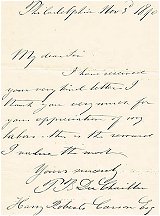 Philadelphia Nov 3d 1890
My dear Sir
I have received
your very kind letter. I
thank you very much for
your appreciation of my
labors – this is the reward
I value the most.
Yours sincerely
Harry Roberts Carson Esq